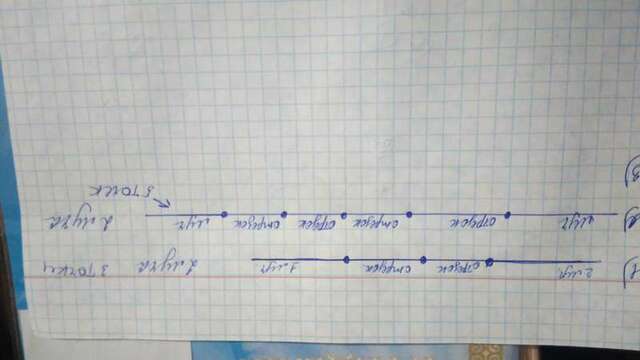 1) 2 луч отрезок отрезок 1 луч 2 луча 3 точки
2) луч отрезок отрезок отрезок отрезок луч 2 луча
5 точек
3)